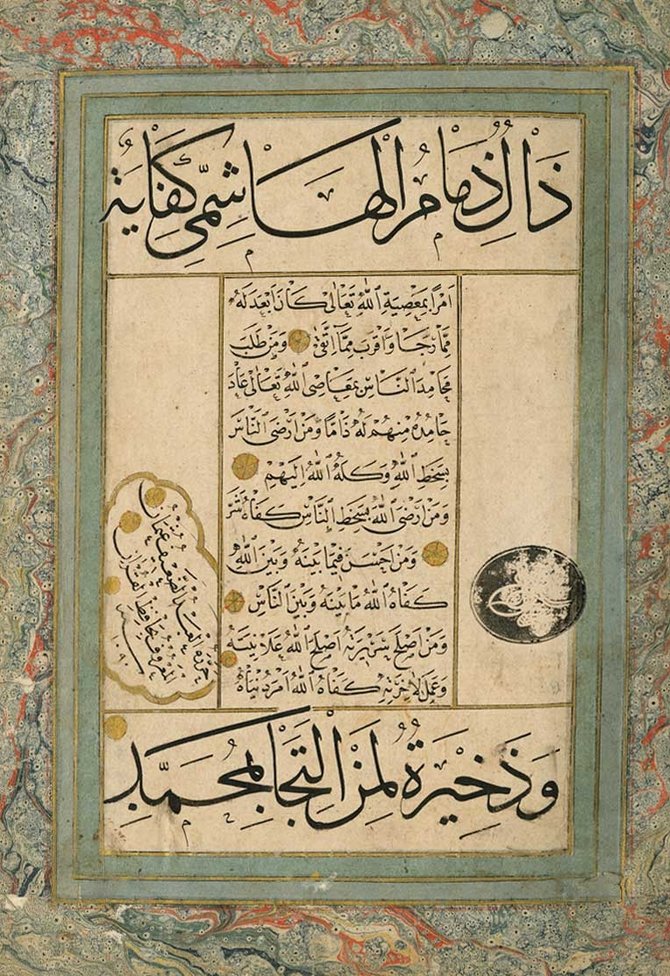 ذمام الهاشمي كفاية
امرا بمعصية الله تعالى كان ابعد له
مما رجا واقرب مما اتقى ومن طلب
محامد الناس بمعاصي الله تعالى عاد
حامده منهم له ذاما ومن ارضى الناس
بسخط الله وكله الله اليهم
ومن ارضى الله بسخط الناس كفاه شر
ومن احسن فيما بينه وبين الله
كفاه الله ما بينه وبين الناس
ومن اصلح سريرته اصلح الله علانيته
وعمل لاخرته كفاه الله امر دنياه
حرره العبد الضعيف عثمان
المعروف بحافظ القرآن
وذخيرة لمن التجا بمحمد